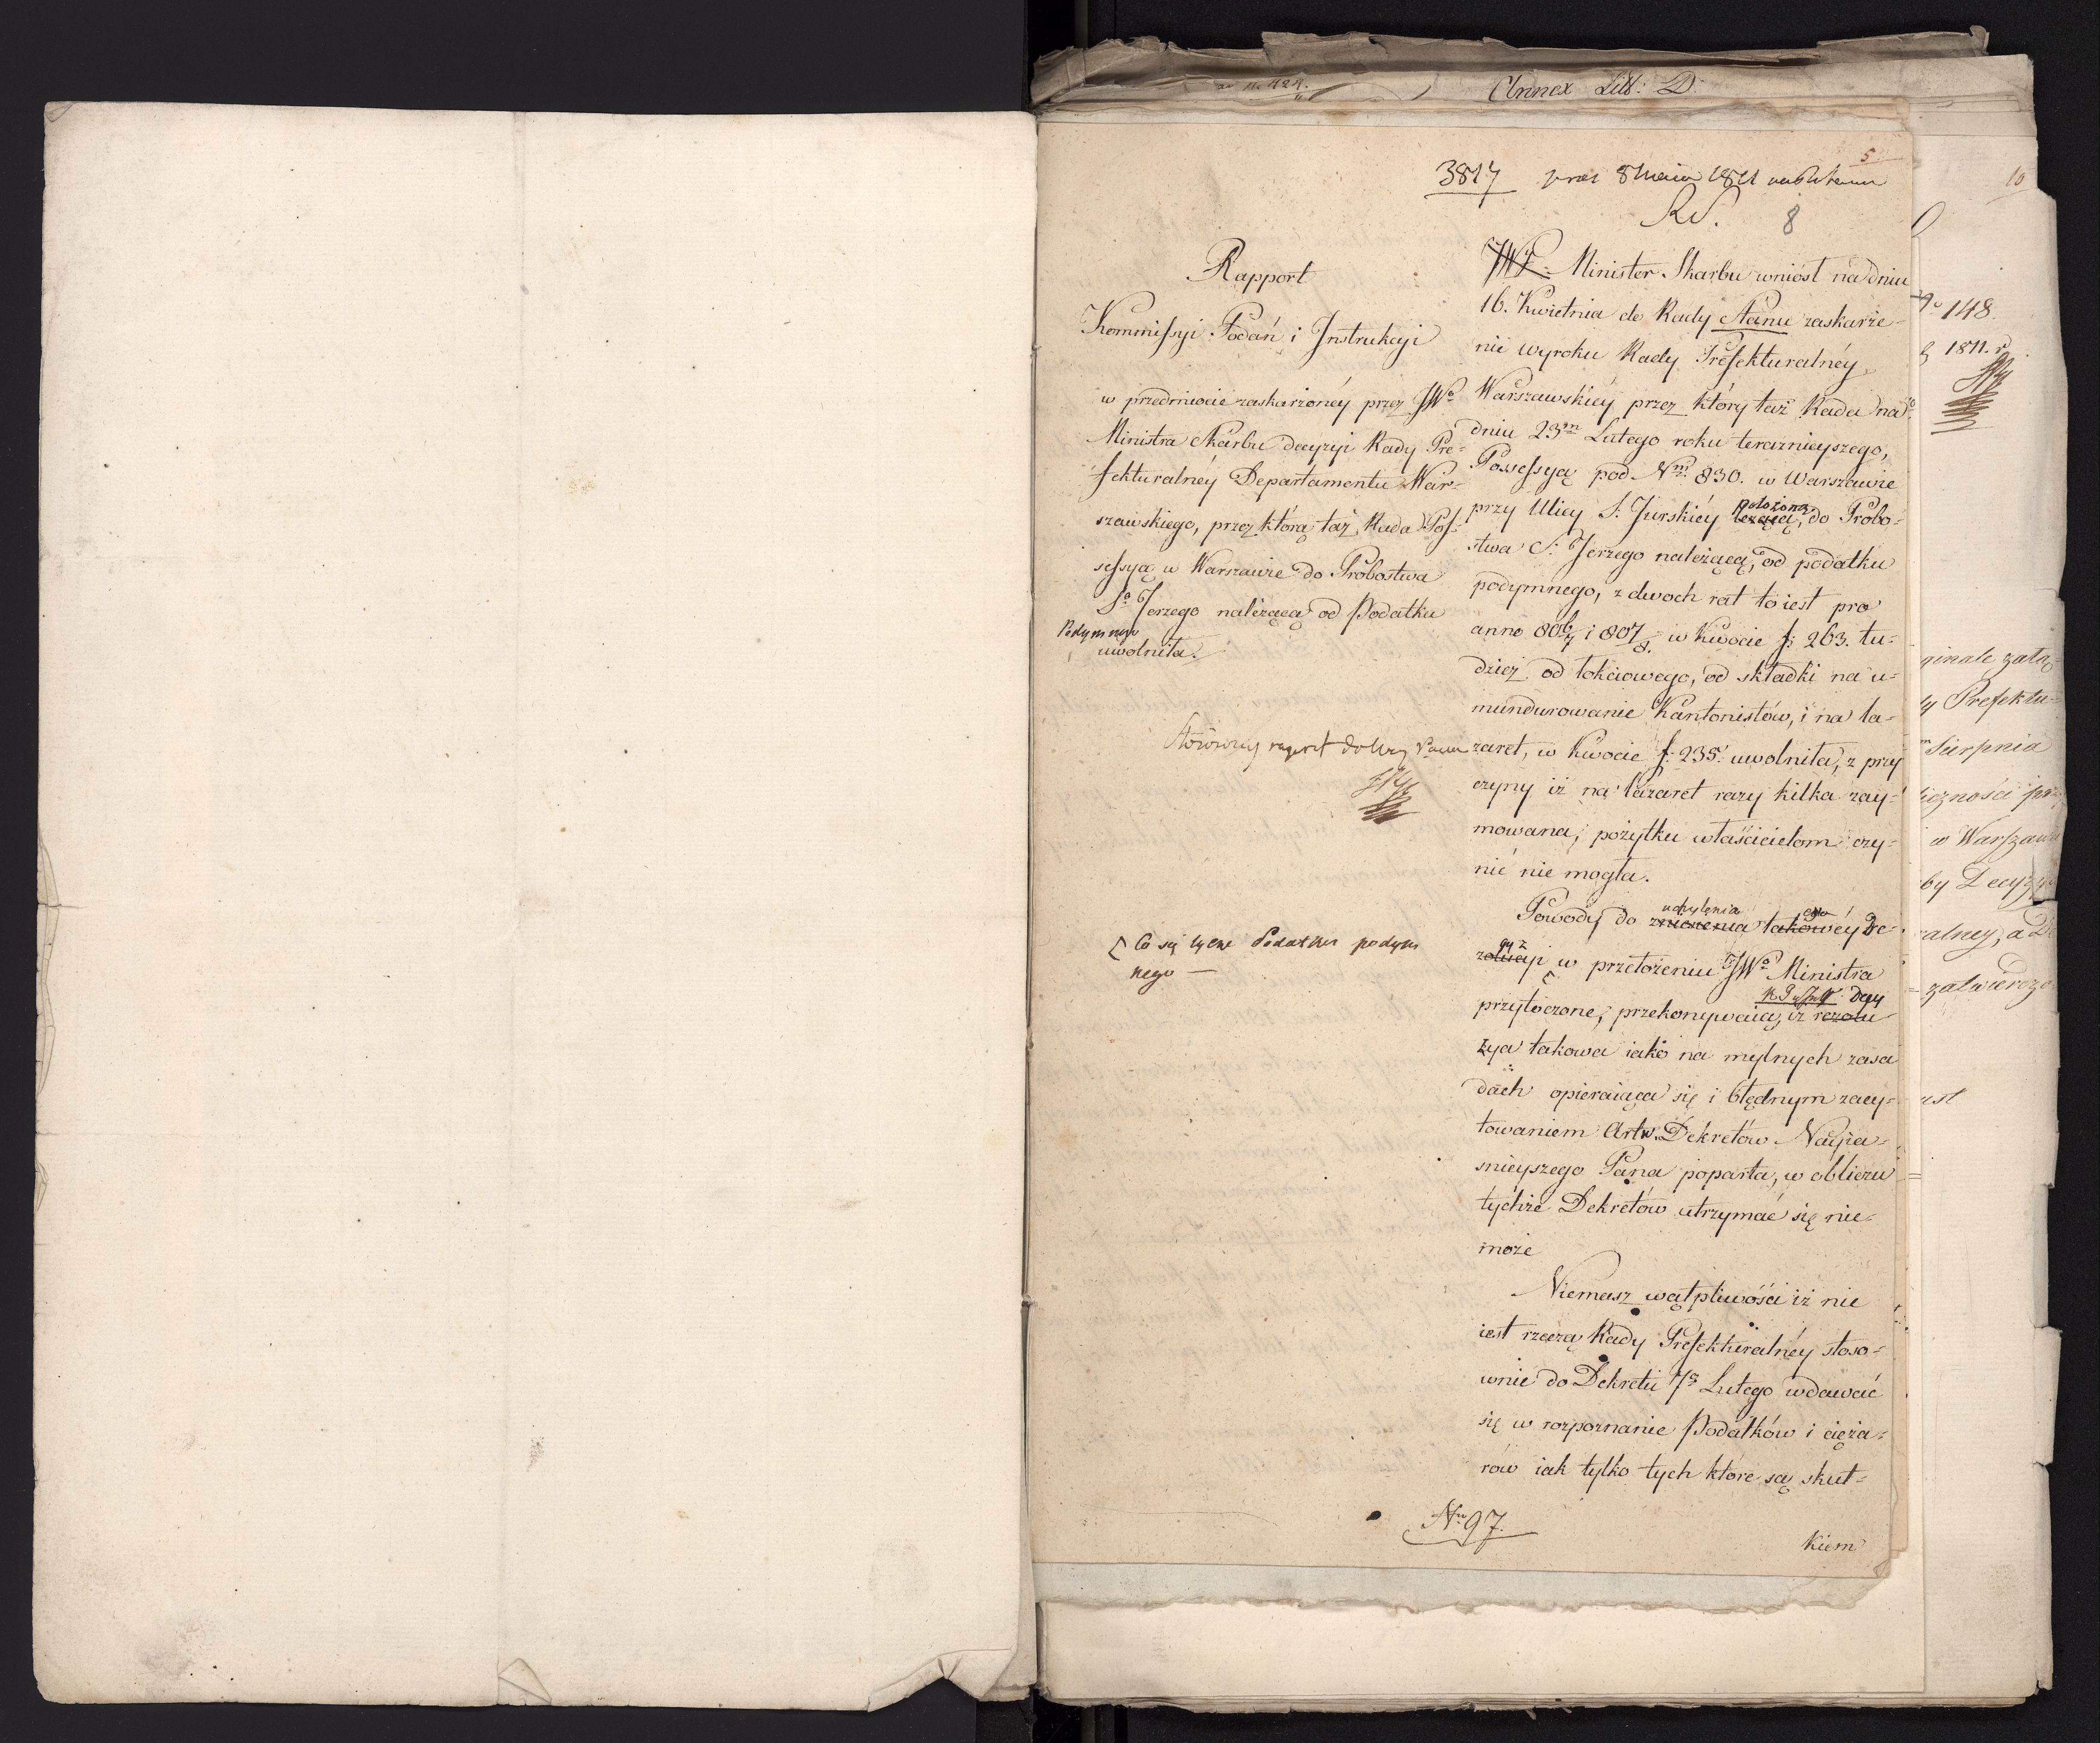 ad N. 424.
Annex Litt: D.
5
3817 praes 8 Maia 1811
RS. 8
Rapport
Kommissyi Podań i Instrukcyi
w przedmiocie zaskarżonéy przez JWo
Ministra Skarbu decyzyi Rady Pre=
fekturalnéy Departamentu War=
szawskiego, przez którą taż Rada Pos=
sessyą w Warszawie do Probostwa
So Jerzego należącą od Podatku
Podymnego
uwolniła.
Stosowny raport do
[ Co się tycze Podatku podym
nego —
JWP. Minister Skarbu wniósł na dniu
16. Kwietnia do Rady Stanu zaskarże=
nie wyroku Rady Prefekturalnéy
Warszawskiéy przez który taż Rada na
dniu 23m Lutego roku teraznieyszego,
Possessyą pod Nm 830. w Warszawie
położoną
przy Ulicy S. Jurskiéy leżącą, do Probo=
stwa S. Jerzego należącą, od podatku
podymnego, z dwoch rat to iest pro
anno 806/7 i 807/8. w kwocie f: 263. tu=
dzież od łokciowego, od składki na u=
mundurowanie Kantonistów, i na la=
zaret, w kwocie f. 235. uwolniła, z przy
czyny iż na lazaret razy kilka zay=
mowana, pożytku właścicielom czy=
nić nie mogła.
uchylenia
Powody do zniesienia takowéy De=
cyz
zolucyi w przełożeniu JWo Ministra
decy
przytoczone, przekonywaią, iż rezolu
zya takowa iako na mylnych zasa
dach opieraiąca się i błędnym zacy=
towaniem Artw. Dekretów Nayia=
snieyszego Pana poparta, w obliczu
tychże Dekretów utrzymać się nie=
może
Niemasz wątpliwości iż nie
iest rzeczą Rady Prefekturalnéy stoso=
wnie do Dekretu 7o Lutego wdawać
się w rozpoznanie Podatków i cięża=
rów iak tylko tych które są skut=
Nro 97.
kiem
10
No 148.
1811. r
ginale załą=
y Prefektu=
m Sierpnia
iczności prz
w Warszawie
by Decyzy
ralney, a D
= zatwierdzo
est